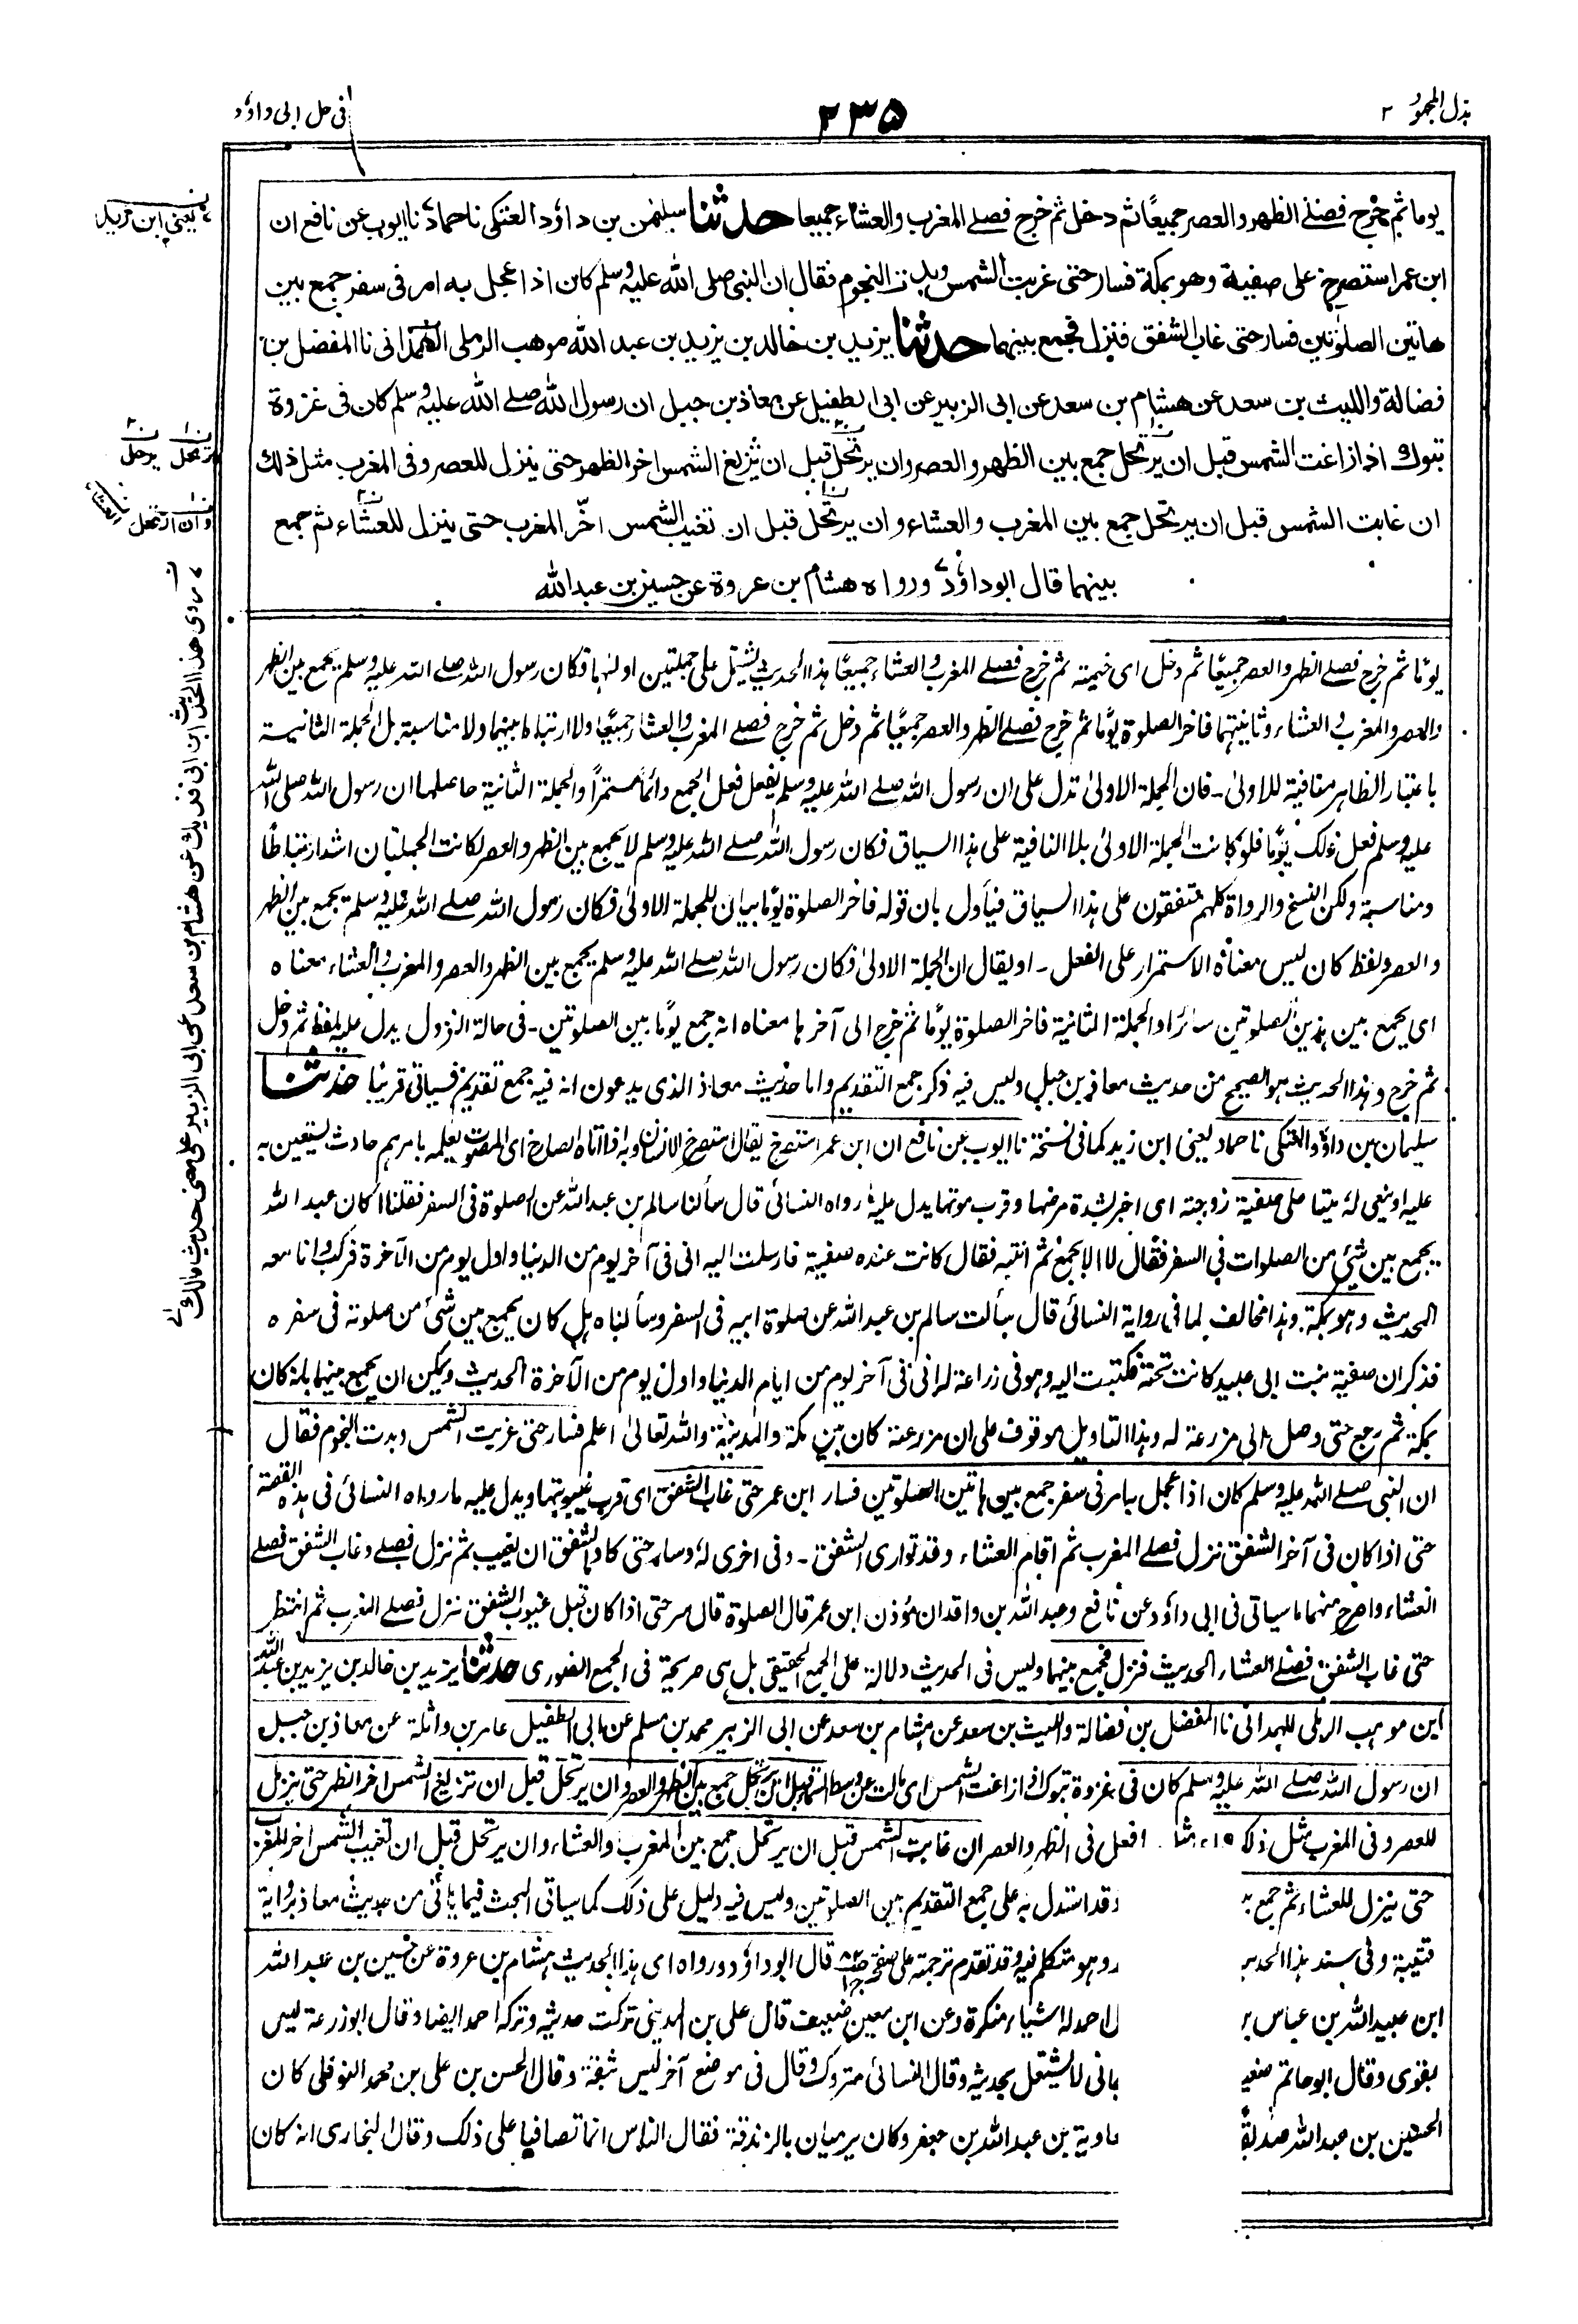 بذل المجهود ٢
٢٣٥
في حل ابى داؤد
يوما ثم خرج فصلى الظهر والعصر جميعًا ثم دخل ثم خرج فصلے المغرب والعشاء جميعا حدثنا سليمن بن داؤد العتكى نا حماد نا ايوب عن نافع ان
ابن عمر استصرخ على صفية وهو بمكة فسار حتى غربت الشمس وبدت النجوم فقال ان النبى صلى الله عليه وسلم كان اذا عجل به امر فى سفر جمع بين
هاتين الصلوٰتين فسار حتى غاب الشفق فنزل فجمع بينهما حدثنا يزيد بن خالد بن يزيد بن عبد الله موهب الرملى الهمدانى نا المفضل بن
فضالة والليث بن سعد عن هشام بن سعد عن ابى الزبير عن ابى الطفيل عن معاذ بن جبل ان رسول الله صلے الله عليه وسلم كان فى غزوة
تبوك اذا زاغت الشمس قبل ان يرتحل جمع بين الظهر والعصر وان يرتحل قبل ان تزيغ الشمس اخر الظهر حتى ينزل للعصر وفى المغرب مثل ذلك
ان غابت الشمس قبل ان يرتحل جمع بين المغرب والعشاء وان يرتحل قبل ان تغيب الشمس اخّر المغرب حتى ينزل للعشاء ثم جمع
بينهما قال ابوداؤد ورواه هشام بن عروة عن حسين بن عبدالله
يعنى ابن زيد
يرتحل يرحل
وان ارتحل العشاء
روى هذا الحديث ابن ابى فديك عن هشام بن سعد عن ابى الزبير على معنى حديث مالك
يومًا ثم خرج فصلے الظهر والعصر جميعًا ثم دخل اى خيمته ثم خرج فصلے المغرب والعشاء جميعًا هذا الحديث يشتمل على جملتين اولٰهما فكان رسول الله صلے الله عليه وسلم يجمع بين الظهر
والعصر والمغرب والعشاء وثانيتهما فاخر الصلوة يومًا ثم خرج فصلے الظهر والعصر جميعًا ثم دخل ثم خرج فصلے المغرب والعشاء جميعًا ولا ارتباط بينهما ولا مناسبة بل الجملة الثانية
باعتبار الظاهر منافية للاولىٰ - فان الجملة الاولىٰ تدل على ان رسول الله صلے الله عليه وسلم يفعل فعل الجمع دائمًا مستمرًا والجملة الثانية حاصلها ان رسول الله صلى الله
عليه وسلم فعل ذلك يومًا فلو كانت الجملة الاولىٰ بلا النافية على هذا السياق فكان رسول الله صلے الله عليه وسلم لا يجمع بين الظهر والعصر لكانت الجملتان اشد ارتباطًا
ومناسبة ولكن النسخ والرواة كلهم متفقون على هذا السياق فيأول بان قوله فاخر الصلوة يومًا بيان للجملة الاولىٰ فكان رسول الله صلے الله عليه وسلم يجمع بين الظهر
والعصر ولفظ كان ليس معناه الاستمرار على الفعل - او يقال ان الجملة الاولىٰ فكان رسول الله صلے الله عليه وسلم يجمع بين الظهر والعصر والمغرب والعشاء معناه
اى يجمع بين هذين الصلوتين سائرا والجملة الثانية فاخر الصلوة يومًا ثم خرج الى آخرها معناه انه جمع يومًا بين الصلوتين - فى حالة النزول يدل عليه لفظ ثم دخل
ثم خرج وهذا الحديث هو الصحيح من حديث معاذ بن جبل وليس فيه ذكر جمع التقديم واما حديث معاذ الذى يدعون انه فيه جمع تقديم فسياتى قريبا حدثنا
سليمان بن داؤد العتكى نا حماد يعنى ابن زيد كما فى نسخة نا ايوب عن نافع ان ابن عمر استصرخ يقال استصرخ الانسان وبه اذا اتاه الصارخ اى المصوت يعلمه بامر مهم حادث يستعين به
عليه او ينعى له ميتا على صفية زوجته اى اخبر لشدة مرضها وقرب موتها يدل عليه رواه النسائى قال سألنا سالم بن عبدالله عن الصلوة فى السفر فقلنا اكان عبد الله
يجمع بين شئ من الصلوات فى السفر فقال لا الا بجمع ثم انتبه فقال كانت عنده صفية فارسلت اليه انى فى آخر يوم من الدنيا واول يوم من الآخرة فركب وانا معه
الحديث وهو بمكة وهذا مخالف لما فى رواية النسائى قال سألت سالم بن عبدالله عن صلوة ابيه فى السفر وسألناه هل كان يجمع بين شئ من صلوته فى سفره
فذكر ان صفية بنت ابى عبيد كانت تحته فكتبت اليه وهو فى زراعة له انى فى آخر يوم من ايام الدنيا واول يوم من الآخرة الحديث ويمكن ان يجمع بينهما بانه كان
بمكة ثم رجع حتى وصل الى مزرعة له وهذا التاويل موقوف على ان مزرعته كان بين مكة والمدينة والله تعالىٰ اعلم فسار حتى غربت الشمس وبدت النجوم فقال
ان النبى صلے الله عليه وسلم كان اذا عجل به امر فى سفر جمع بين هاتين الصلوتين فسار ابن عمر حتى غاب الشفق اى قرب غيبوبتها ويدل عليه ما رواه النسائى فى هذه القصة
حتى اذا كان فى آخر الشفق نزل فصلے المغرب ثم اقام العشاء وقد توارى الشفق - وفى اخرى له وسار حتى كاد الشفق ان يغيب ثم نزل فصلے وغاب الشفق فصلے
العشاء واصرح منهما ما سياتى فى ابى داؤد عن نافع وعبدالله بن واقد ان مؤذن ابن عمر قال الصلوة قال سر حتى اذا كان قبل غيوب الشفق نزل فصلے المغرب ثم انتظر
حتى غاب الشفق فصلے العشاء الحديث فنزل فجمع بينهما وليس فى الحديث دلالة على الجمع الحقيقى بل هى صريحة فى الجمع الصورى حدثنا يزيد بن خالد بن يزيد بن عبد الله
ابن موهب الرملى الهمدانى نا المفضل بن فضالة والليث بن سعد عن هشام بن سعد عن ابى الزبير محمد بن مسلم عن ابى الطفيل عامر بن واثلة عن معاذ بن جبل
ان رسول الله صلے الله عليه وسلم كان فى غزوة تبوك اذا زاغت الشمس اى مالت عن وسط السماء قبل ان يرتحل جمع بين الظهر والعصر وان يرتحل قبل ان تزيغ الشمس اخر الظهر حتى ينزل
للعصر وفى المغرب مثل ذلك افعل فى الظهر والعصر ان غابت الشمس قبل ان يرتحل جمع بين المغرب والعشاء وان يرتحل قبل ان تغيب الشمس اخر المغرب
حتى ينزل للعشاء ثم جمع وقد استدل به على جمع التقديم بين الصلوتين وليس فيه دليل على ذلك كما سياتى البحث فيما ياتى من حديث معاذ برواية
قتيبة وفى سند هذا وهو متكلم فيه وقد تقدم ترجمته على صفحة قال ابوداؤد ورواه اى هذا الحديث هشام بن عروة عن حسين بن عبد الله
ابن عبيدالله بن عباس احمد له اشياء منكرة وعن ابن معين ضعيف قال على بن المدينى تركت حديثه وتركه احمد ايضا وقال ابوزرعة ليس
بقوى وقال ابوحاتم لا يشتغل بحديثه وقال النسائى متروك وقال فى موضع آخر ليس بثقة وقال الحسن بن على بن محمد النوفلى كان
الحسين بن عبدالله بن عبدالله بن جعفر وكان يرميان بالزندقة فقال الناس انما تصافيا على ذلك وقال البخارى انه كان